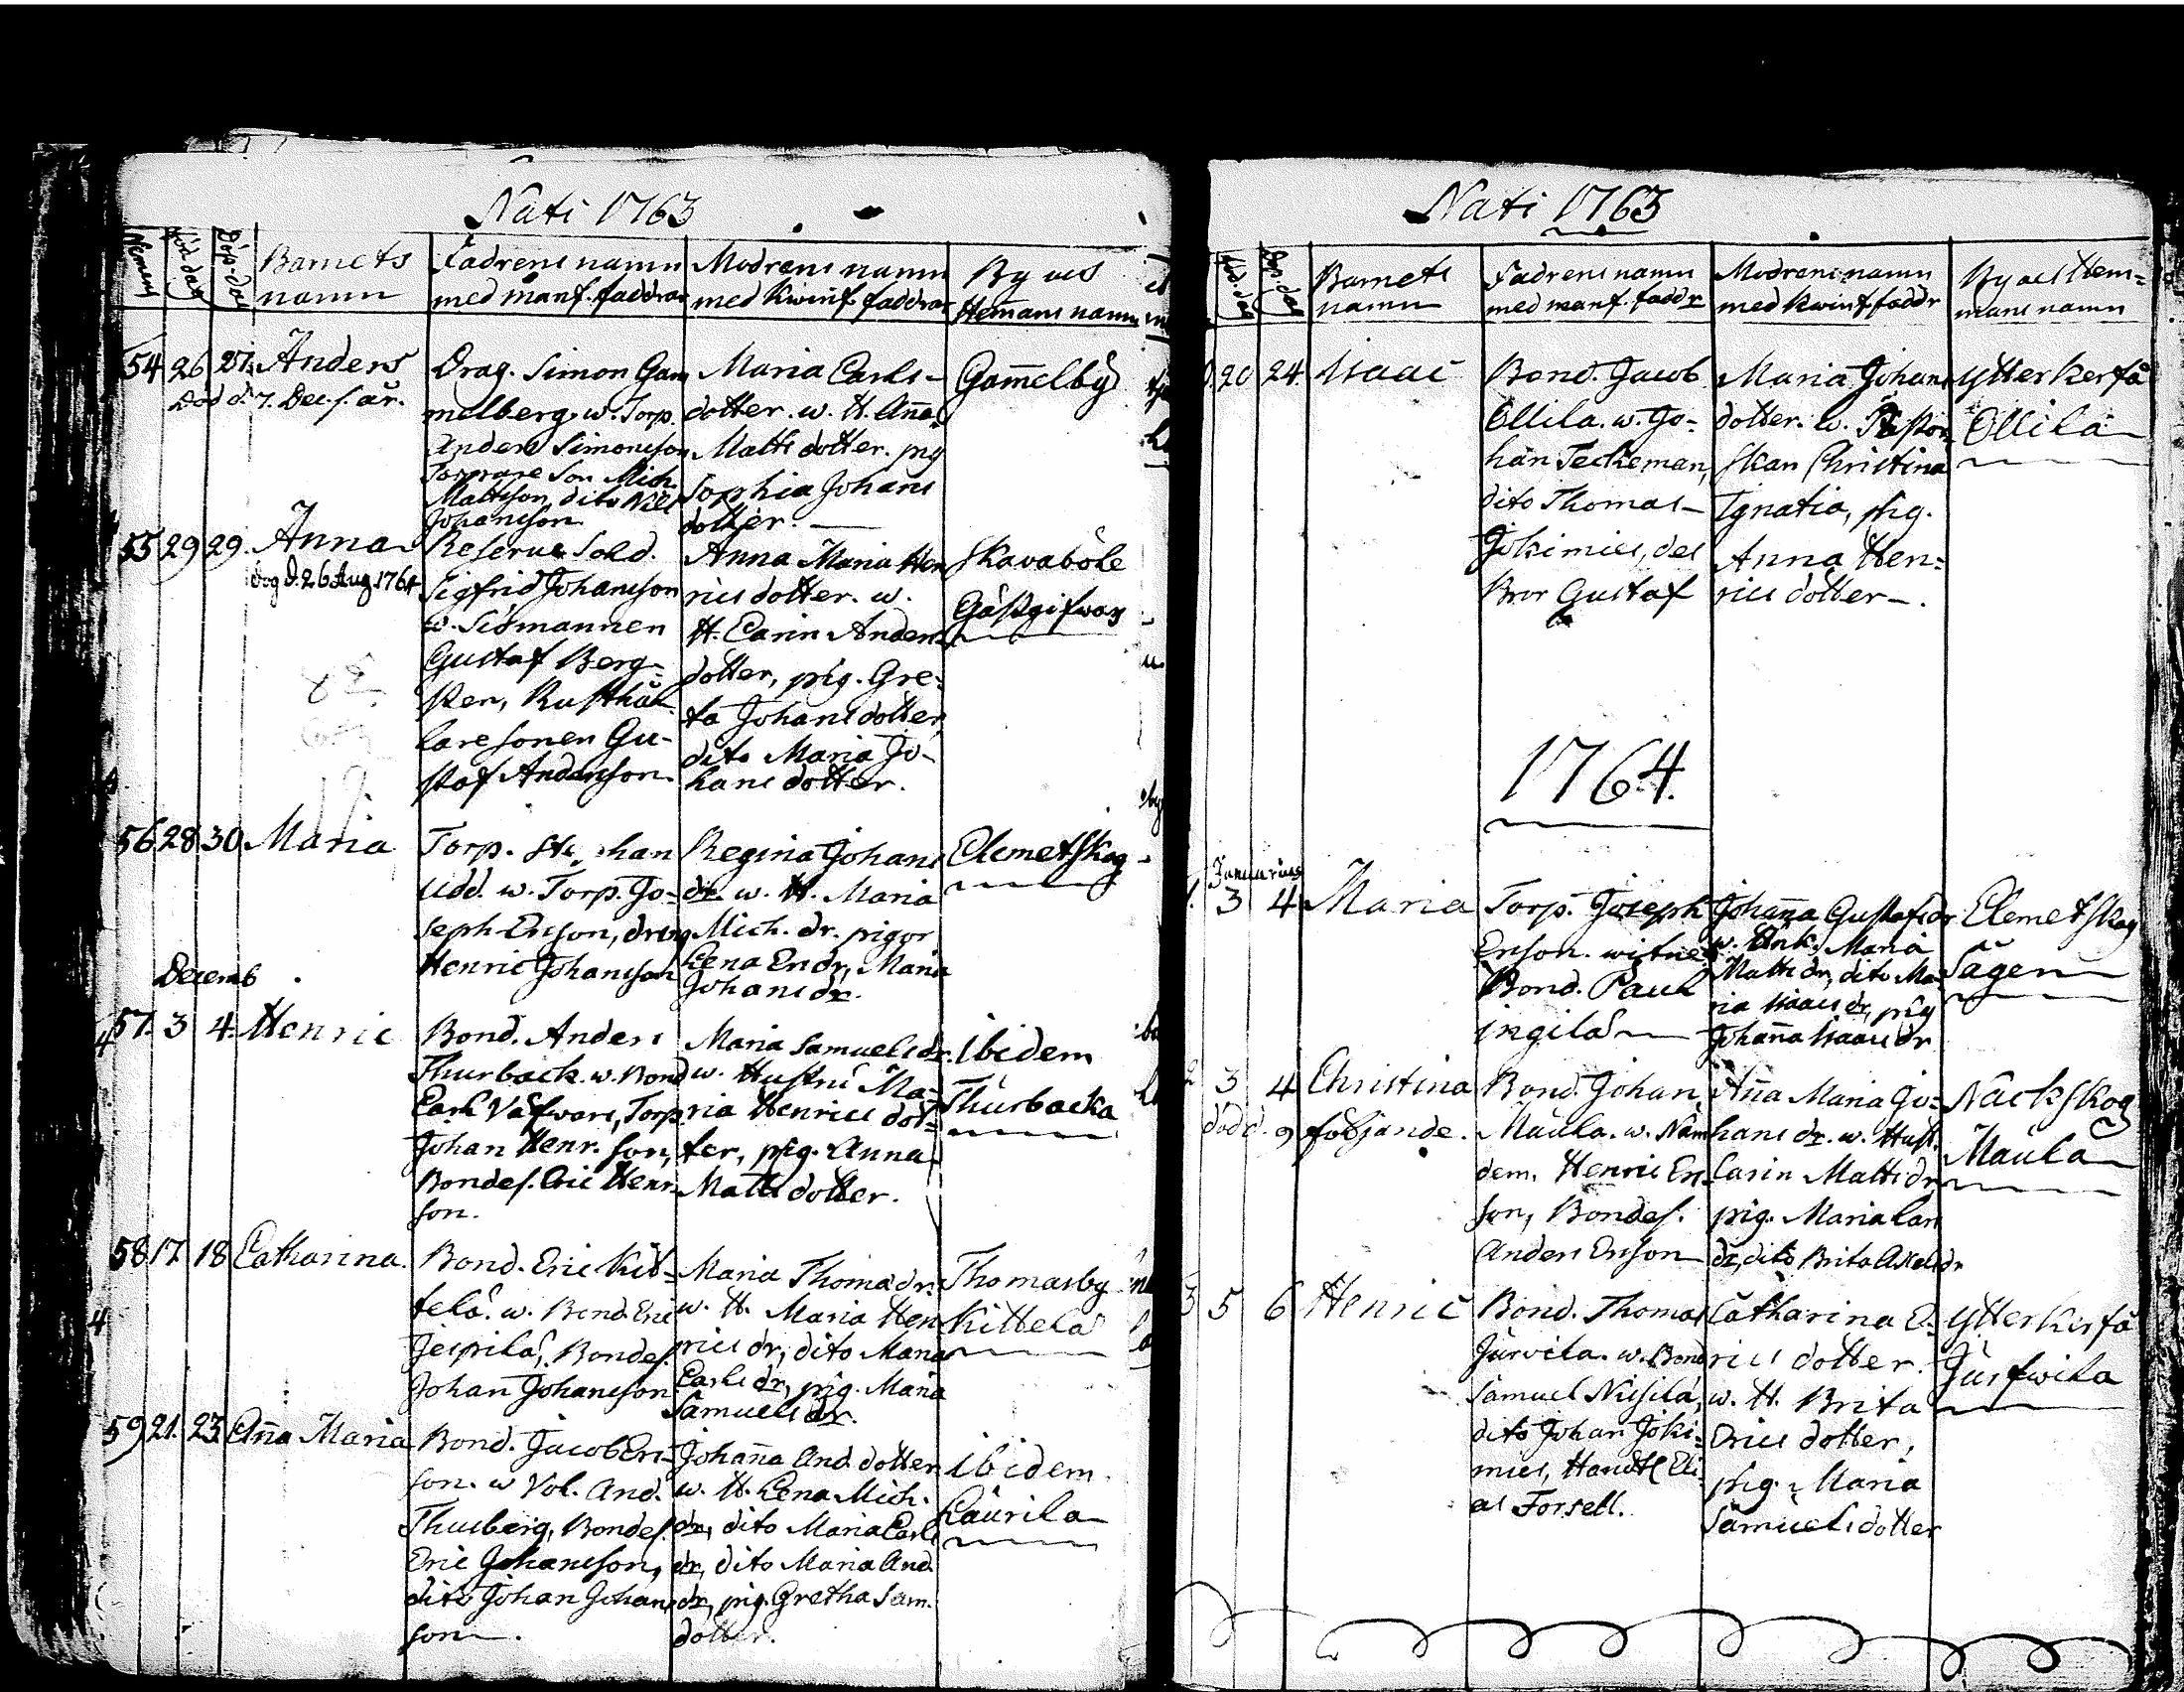 Nati 1763
Numeru Föd. dag Döp-dag Barnets namn
Fadrens namn med manf. faddrar
Modrens namn med kwinf. faddrar
By och Hemans namn
54 26 27. Anders
Död d. 7. Dec. f. år.
Drag. Simon Gam
melberg. w. Torp.
Anders Simonsson
Torpare Son Mich.
Mattsson, dito Nils
Johansson
Maria Carls-
dotter. w. H. Aña
Matts dotter. pig
Sophia Johans
dotter.
Gam̃elby
55 29 29. Anna
dog d. 26 Aug 1764
Reserve Sold.
Sigfrid Johansson
w. Siömannen
Gustaf Berg-
sten, Rusthål-
lare sonen Gu-
staf Andersson
Anna Maria Hen
rics dotter. w.
H. Carin Anders
dotter, pig. Gre-
ta Johans dotter,
dito Maria Jo-
hans dotter.
Skavaböle
Gästgifwars
56 28 30 Maria
Torp. Stephan
Udd. w. Torp. Jo-
seph Ersson, dreng
Henric Johansson
Regina Johans
dr. w. H. Maria
Mich. dr. pigor
Lena Ers dr, Maria
Johans dr.
Elemetskog
Decemb
57. 3 4. Henric
Bond. Anders
Thurback. w. Bond
Carl Våfwars, Torp.
Johan Henr. son,
Bondes. Eric Henr-
son.
Maria Samuels dr.
w. Hustru Ma-
ria Henrics dot-
ter, pig. Anna
Matts dotter.
Ibidem
Thurbacka
58 17. 18 Catharina.
Bond. Eric Kit-
telä. w. Bond. Eric
Jespilä, Bondes.
Johan Johansson
Maria Thomas dr.
w. H. Maria Hen
rics dr, dito Maria
Carls dr, pig. Maria
Samuels dr.
Thomasby
Kittelä
59 21. 23. Aña Maria
Bond. Jacob Ers-
son. w Vol. And.
Thusberg, Bondes.
Eric Johansson,
dito Johan Johans
son.
Johaña And. dotter
w. H. Lena Mich.
dr, dito Maria Carls
dr, dito Maria And.
dr, pig. Gretha Sam.
dotter.
ibidem.
Laurila
Nati 1763
Föd. dag Döp. dag Barnets namn
Fadrens namn med manf. faddr
Modrens namn med kwinf faddr
By och Hem-
mans namn
20 24. Isaac
Bond. Jacob
Ollila. w. Jo-
han Teckeman,
dito Thomas
Jokimies, des
Bror Gustaf
Maria Johans
dotter. w. Pastor
skan Christina
Ignatia, pig.
Anna Hen-
rics dotter.
Ytterkerfå
Ollila
1764.
Januarius
1. 3 4. Maria
Torp. Joseph
Ersson. witne
Bond. Paul
ingilä
Johaña Gustafs dr
w. Änk. Maria
Matts dr, dito Ma-
ria Isaacs dr, pig
Johaña Isaacs dr
Elemetskog
Sågen
2 3 4 Christina
död d. 9 följande.
Bond. Johan
Maula. w. Näm
dem. Henric Ers-
son, Bondes.
Anders Ersson
Aña Maria Jo-
hans dr. w. Hust.
Carin Matts dr
pig. Maria Carls
dr, dito Brita Axels dr
Näckskog
Maula
3 5 6 Henric
Bond. Thomas
Järvila. w. Bond
Samuel Nissilä,
dito Johan Joki-
mies, Handtl. Eli-
as Forsell.
Catharina E-
rics dotter.
w. H. Brita
Erics dotter,
pig. Maria
Samuels dotter
Ytterkerfå
Järfwila